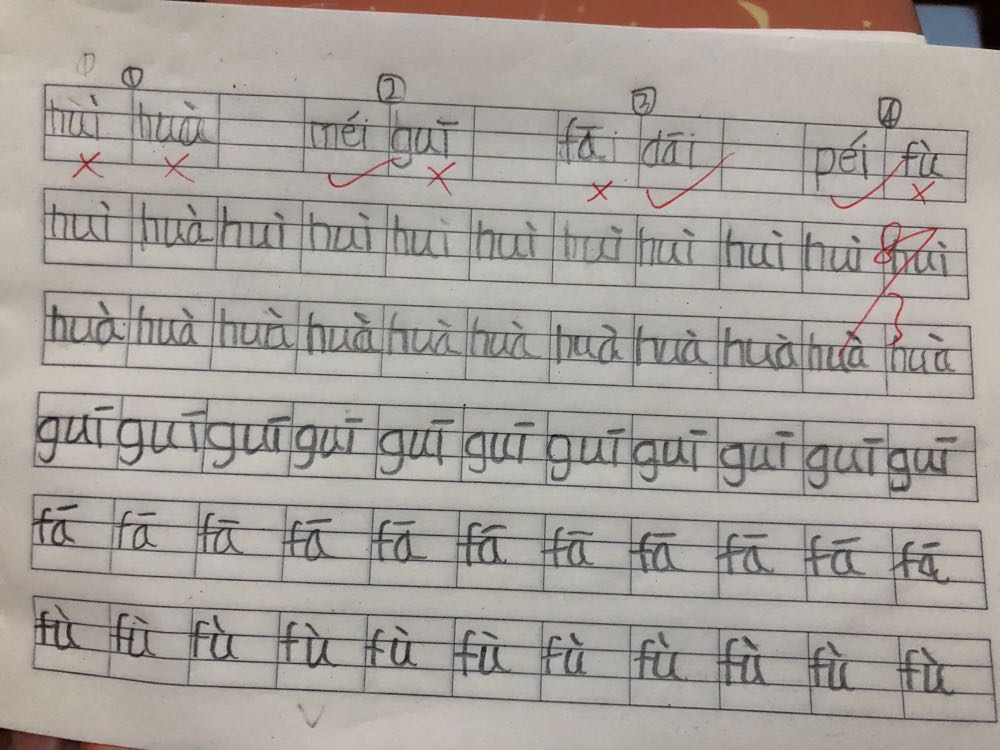 ① ② ③ ④
hùì huà méi guī fā dāi péi fù
huì huà huì huì huì huì huì huì huì huì huì
huà huà huà huà huà huà huà huà huà huà huà
guī guī guī guī guī guī guī guī guī guī guī
fā fā fā fā fā fā fā fā fā fā fā
fù fù fù fù fù fù fù fù fù fù fù